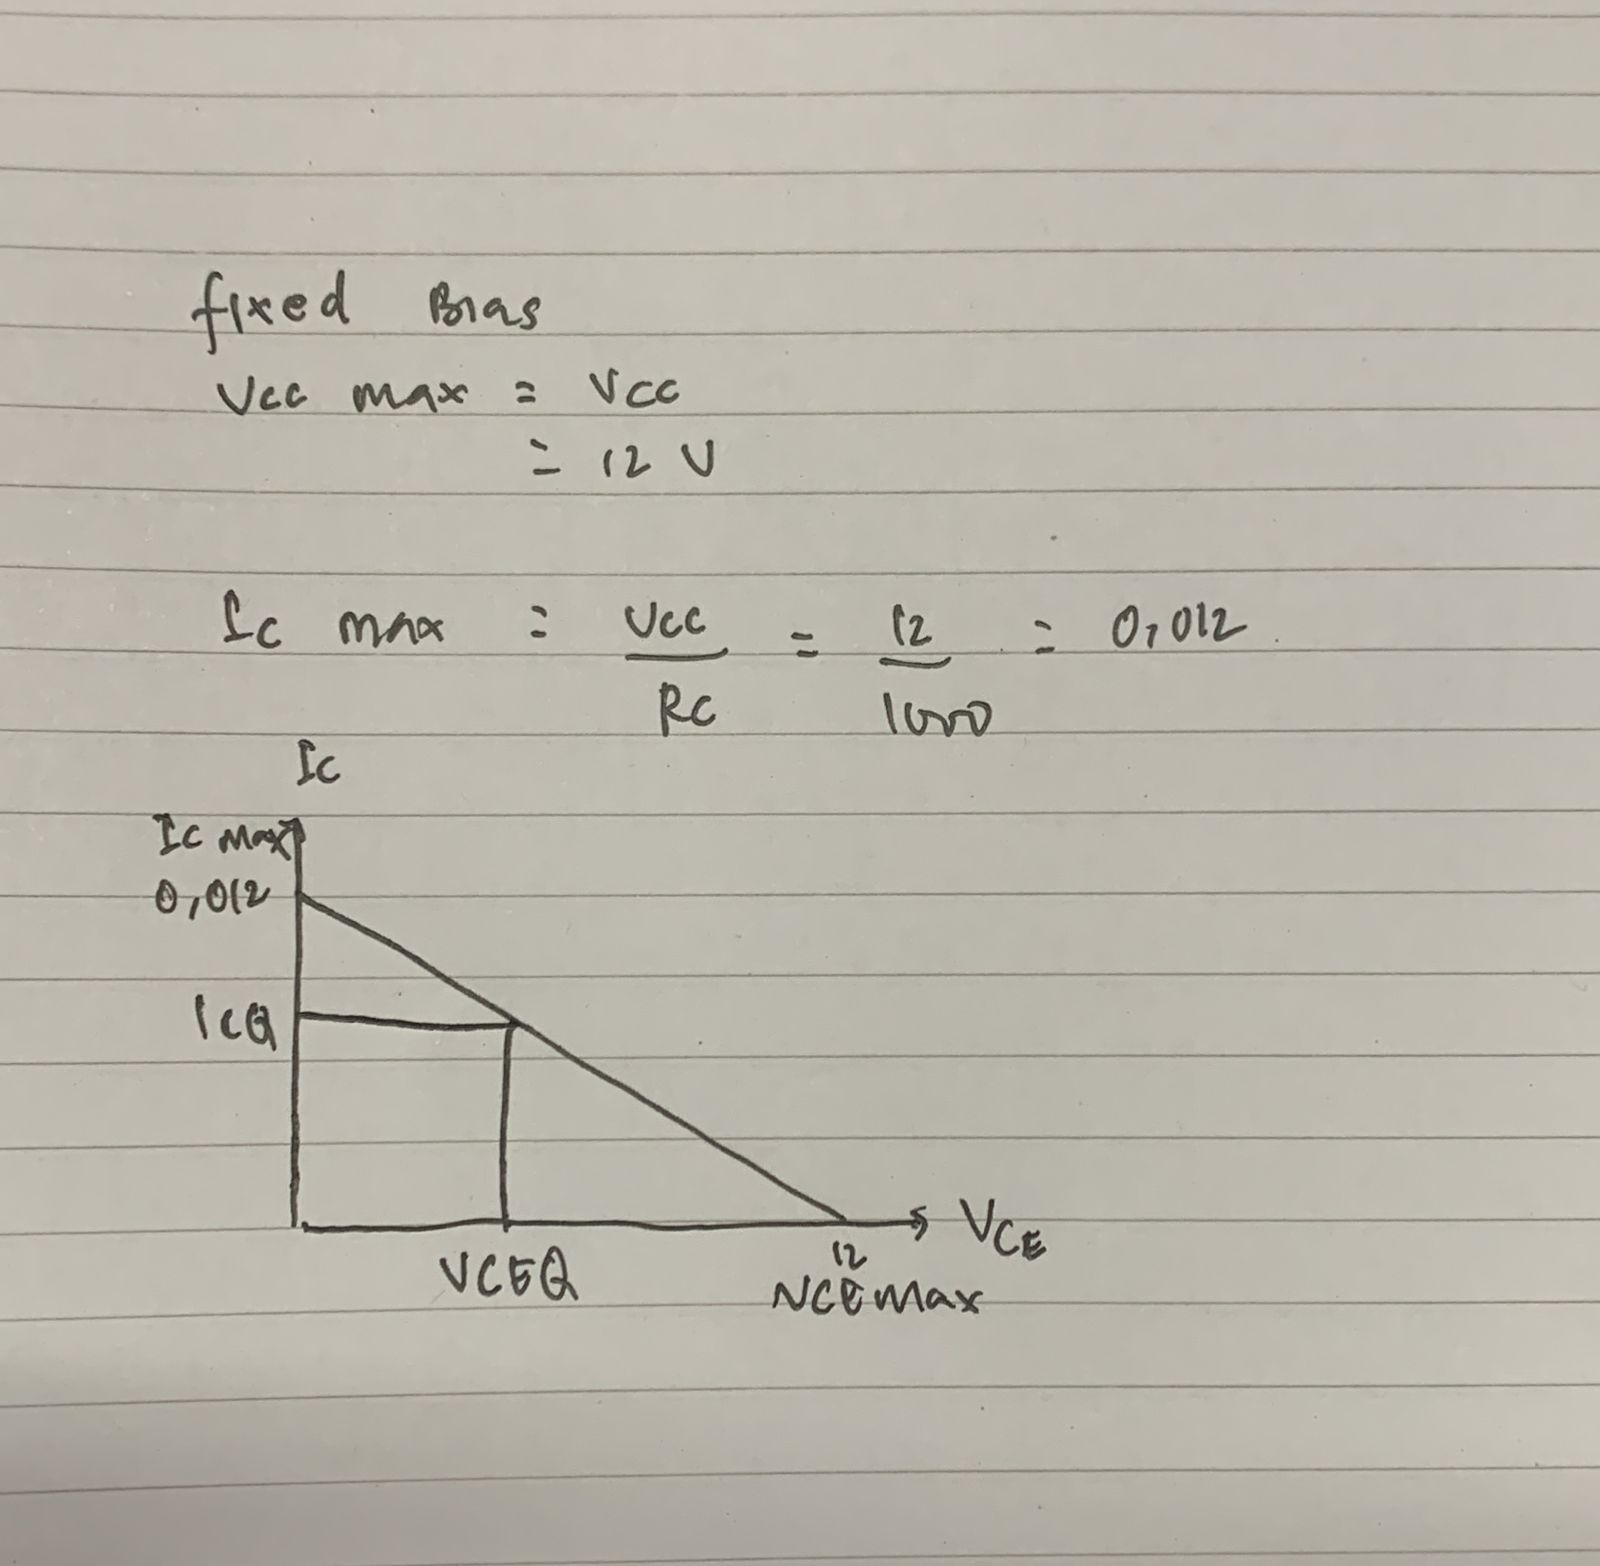 fixed Bias
Vcc max = Vcc
= 12 V
Ic max = Vcc / Rc = 12 / 1000 = 0,012
Ic
Ic Max
0,012
ICQ
VCEQ
12
VCE
VCE Max